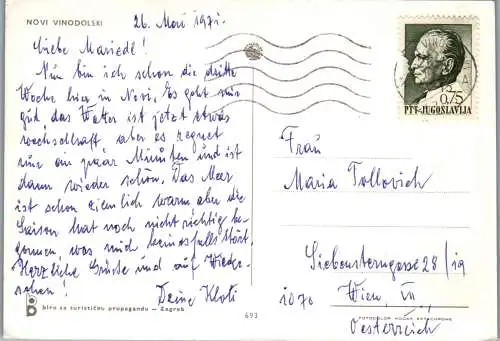 NOVI VINODOLSKI
26. Mai 1971.
Liebe Mariedl!
Nun bin ich schon die dritte
Woche hier in Novi. Es geht mir
gut das Wetter ist jetzt etwas
wechselhaft aber es regnet
nur ein paar Minuten und ist
dann wieder schön. Das Meer
ist schon ziemlich warm aber die
Saison hat noch nicht richtig be-
gonnen, was mich keinesfalls stört.
Herzliche Grüße und auf Wieder-
sehen!
Deine Kloti
biro za turističku propagandu — Zagreb
693
0.75
PTT-JUGOSLAVIJA
Frau
Maria Tollovich
Siebensterngasse 28/19
1070 Wien, VII
Österreich
FOTOCOLOR